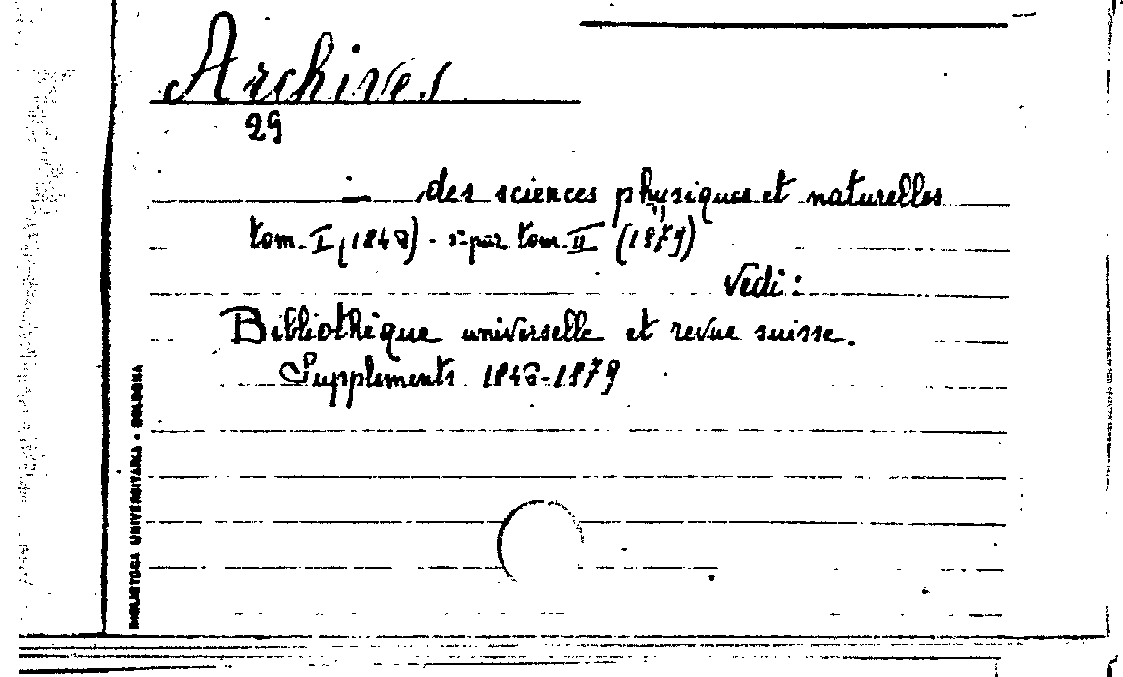 Archives
29
— des sciences physiques et naturelles
tom. I (1846) - 3ª par tom. II (1879)
Vedi:
Bibliothèque universelle et revue suisse.
Supplements 1846-1879
BIBLIOTECA UNIVERSITARIA - BOLOGNA